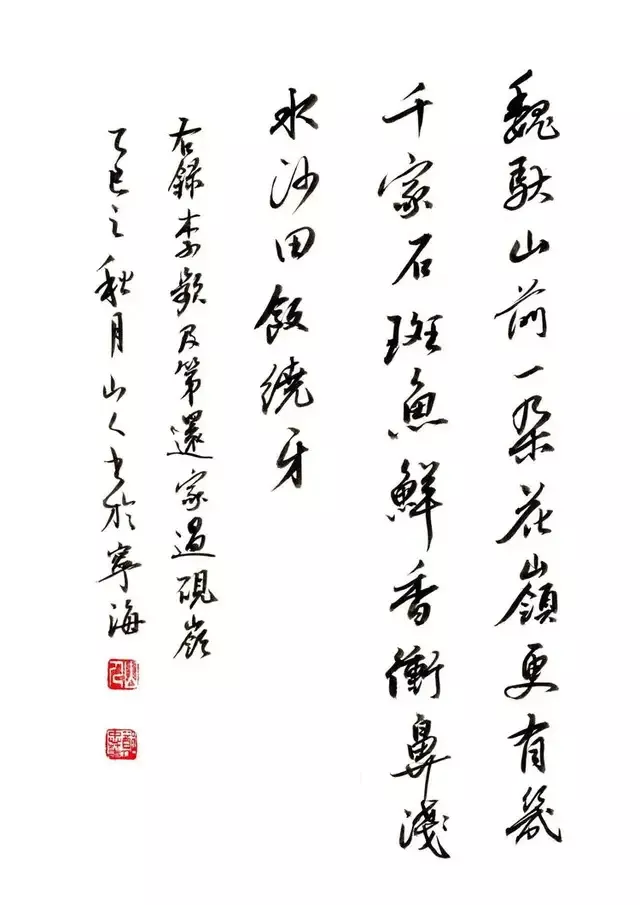 魏馱山前一朶花嶺更有幾
千家石斑魚鮮香衝鼻淺
水沙田飯繞牙
右錄李頻及第還家過硯嶺
乙巳之秋月山人书於寧海